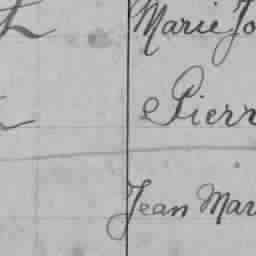 Marie Jo
Pierr
Jean Mar